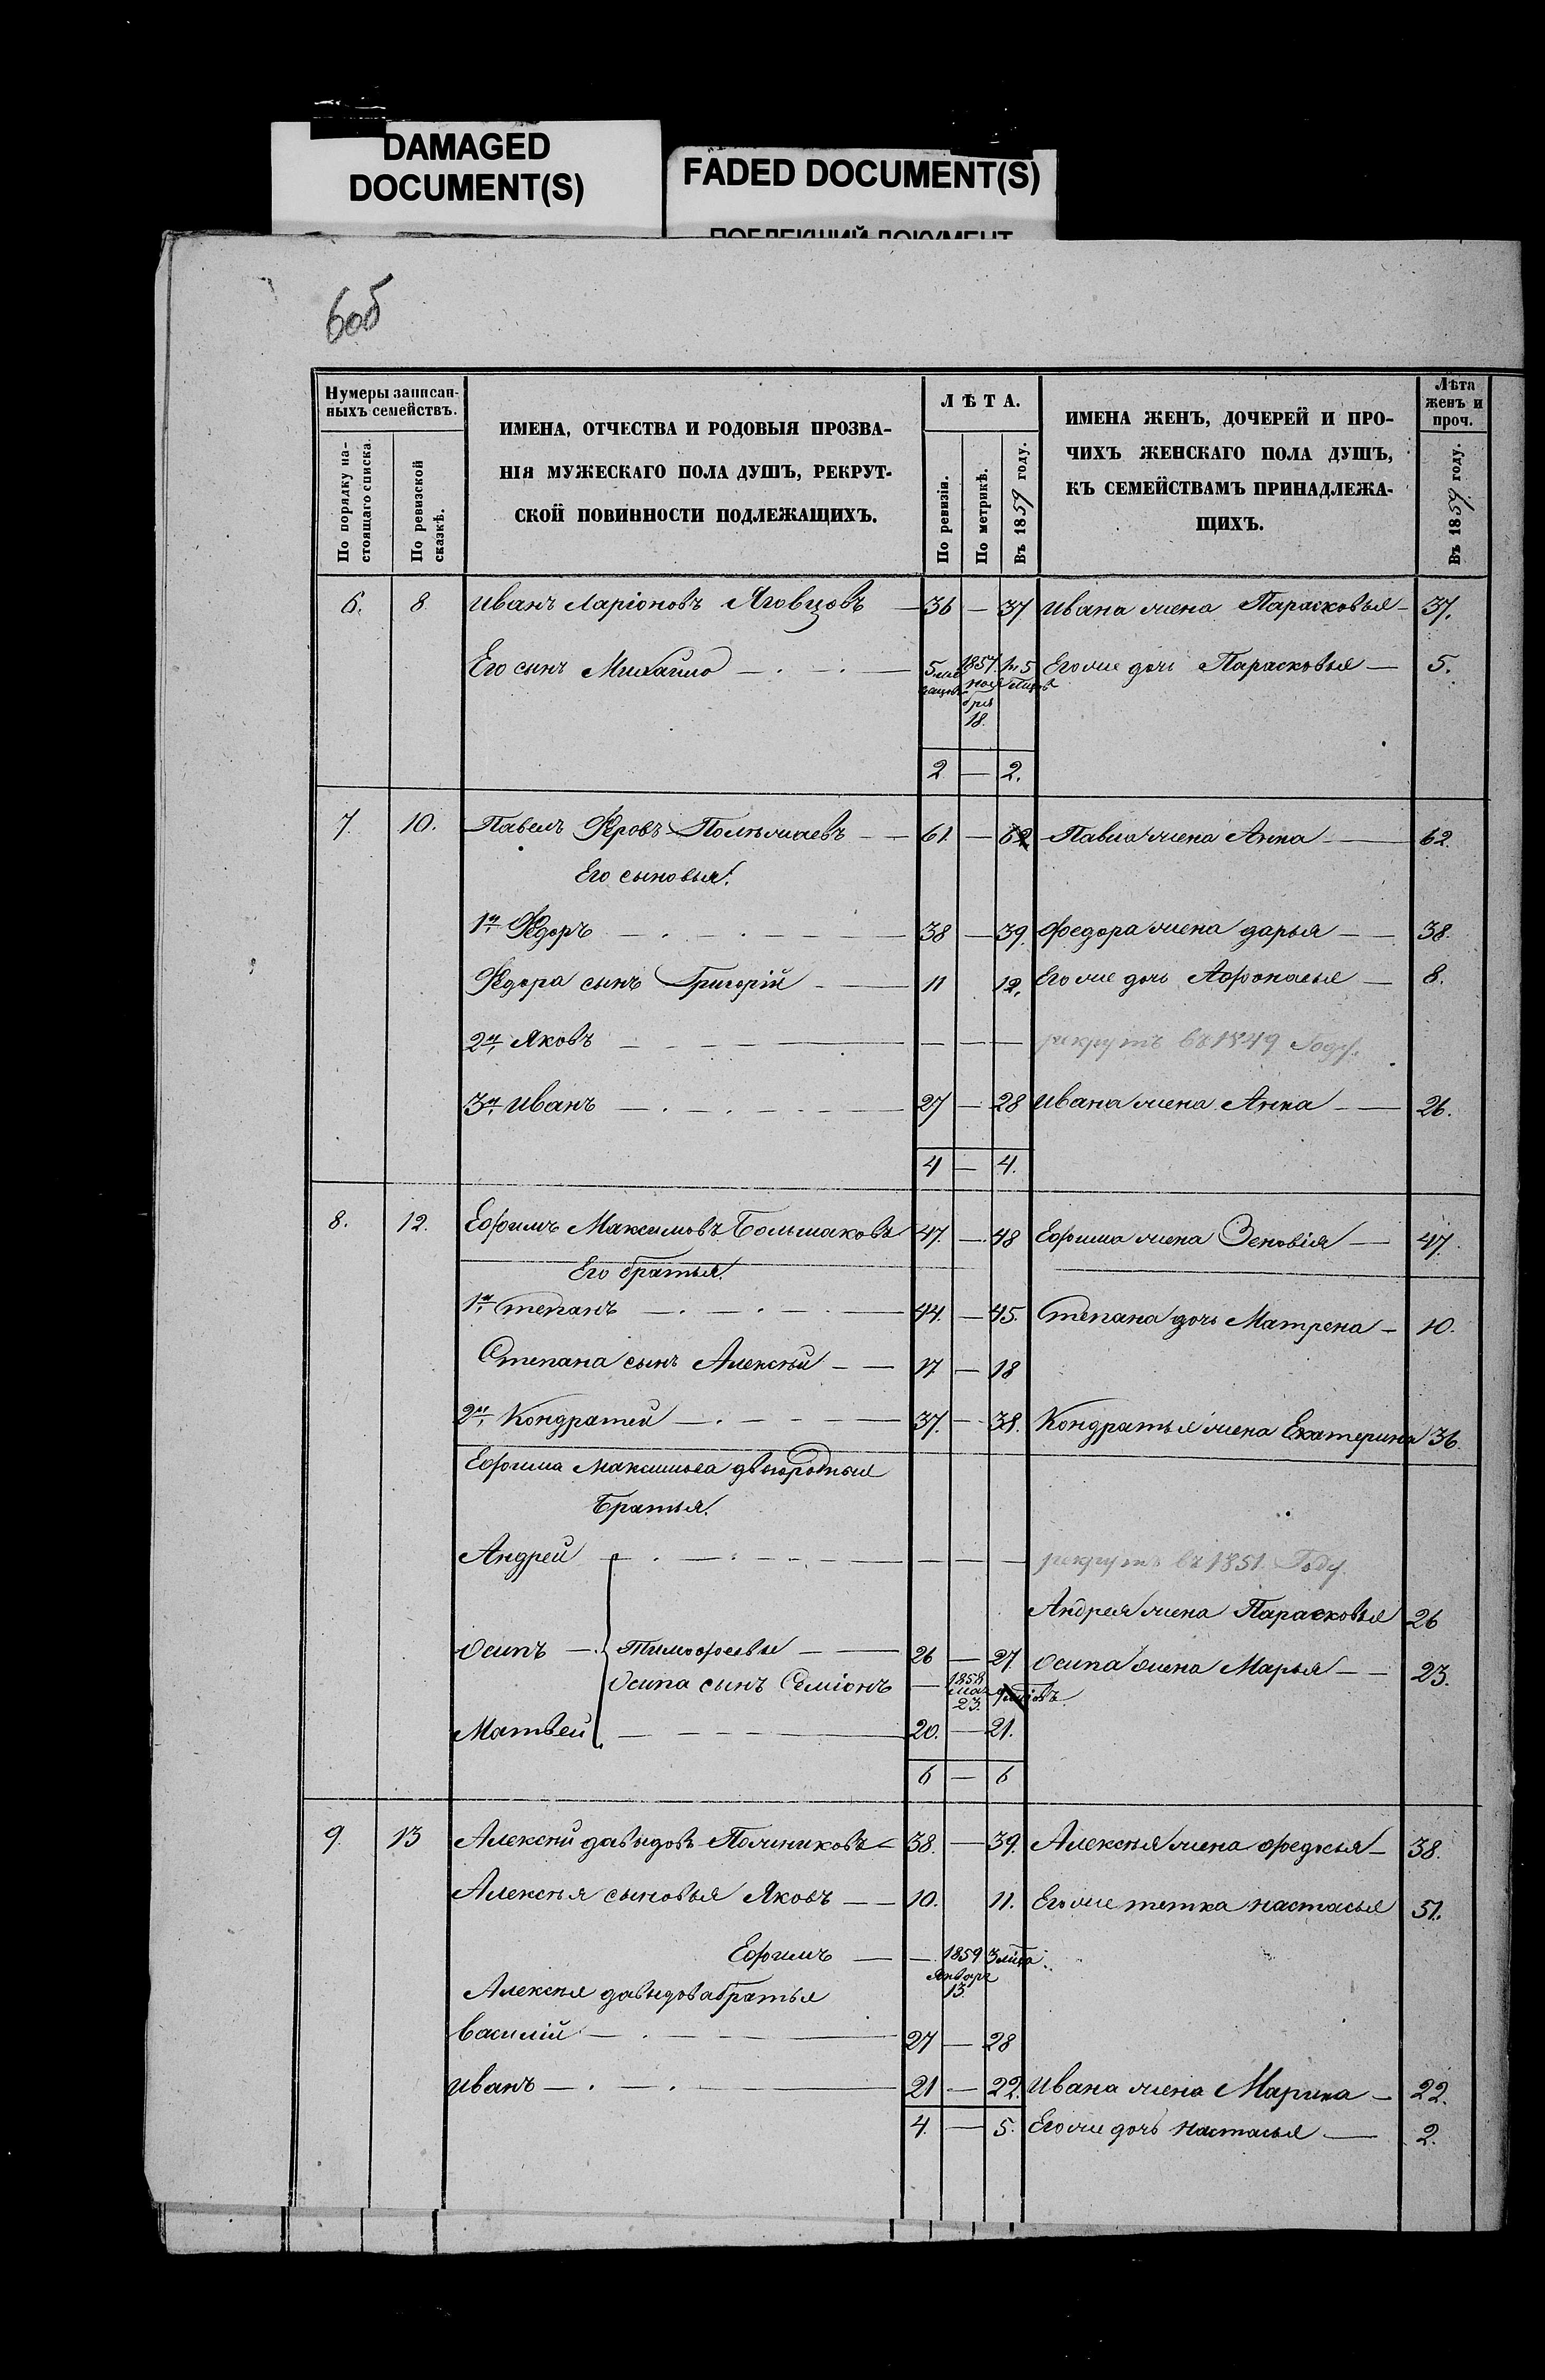 DAMAGED
DOCUMENT(S)
FADED DOCUMENT(S)
ПОБЛЕКШИЙ ДОКУМЕНТ
6об
Нумеры записан-
ныхъ семействъ.
По порядку на-
стоящаго списка.
По ревизской
сказкѣ.
ИМЕНА, ОТЧЕСТВА И РОДОВЫЯ ПРОЗВА-
НІЯ МУЖЕСКАГО ПОЛА ДУШЪ, РЕКРУТ-
СКОЙ ПОВИННОСТИ ПОДЛЕЖАЩИХЪ.
ЛѢТА.
По ревизіи.
По метрикѣ.
Въ 1859 году.
ИМЕНА ЖЕНЪ, ДОЧЕРЕЙ И ПРО-
ЧИХЪ ЖЕНСКАГО ПОЛА ДУШЪ,
КЪ СЕМЕЙСТВАМЪ ПРИНАДЛЕЖА-
ЩИХЪ.
Лѣта
женъ и
проч.
Въ 1859 году.
6. 8 Иванъ Ларіоновъ Яговцовъ — 36 — 37 Ивана жена Парасковья — 37.
Его сынъ Михайло — 5 1857 ноя бря 18. Его же дочь Парасковья — 5.
2 — 2.
7. 10. Павелъ — 61 — 62 Павла жена Анна — 62.
Его сыновья:
1й Федоръ — 38 — 39. Федора жена Дарья — 38.
Федора сынъ Григорій — 11 12. Его же дочь Афонасья — 8.
2й Яковъ — — — рекрутъ въ 1849 Году.
3й Иванъ — 27 — 28 Ивана жена Анна — 26.
4 — 4.
8. 12. Ефимъ Максимовъ Большаковъ 47. — 48 Ефима жена Зеновія — 47.
Его братья.
1й Степанъ — 44. — 45. Степана дочь Матрена — 10.
Степана сынъ Алексѣй — 17 — 18
2й Кондратей — 37. — 38. Кондратья жена Екатерина 36.
Ефима Максимова двоюродныя
Братья.
Андрей — — — рекрутъ въ 1851. Году.
Андрея жена Парасковья 26
Осипъ — Тимофеевы — 26 — 27. Осипа жена Марья — 23.
Осипа сынъ Семіонъ — 1858 23.
Матвей — 20. — 21.
6 — 6
9. 13 Алексѣй Давыдовъ — 38. — 39. Алексѣя жена Федосья — 38.
Алексѣя сыновья Яковъ — 10. 11. Его же тетка Настасья 51.
Ефимъ — — 1859 Января 13.
Алексѣя Давыдова братья
Василій — 27 — 28
Иванъ — 21 — 22. Ивана жена Марина — 22.
4. — 5. Его же дочь Настасья — 2.